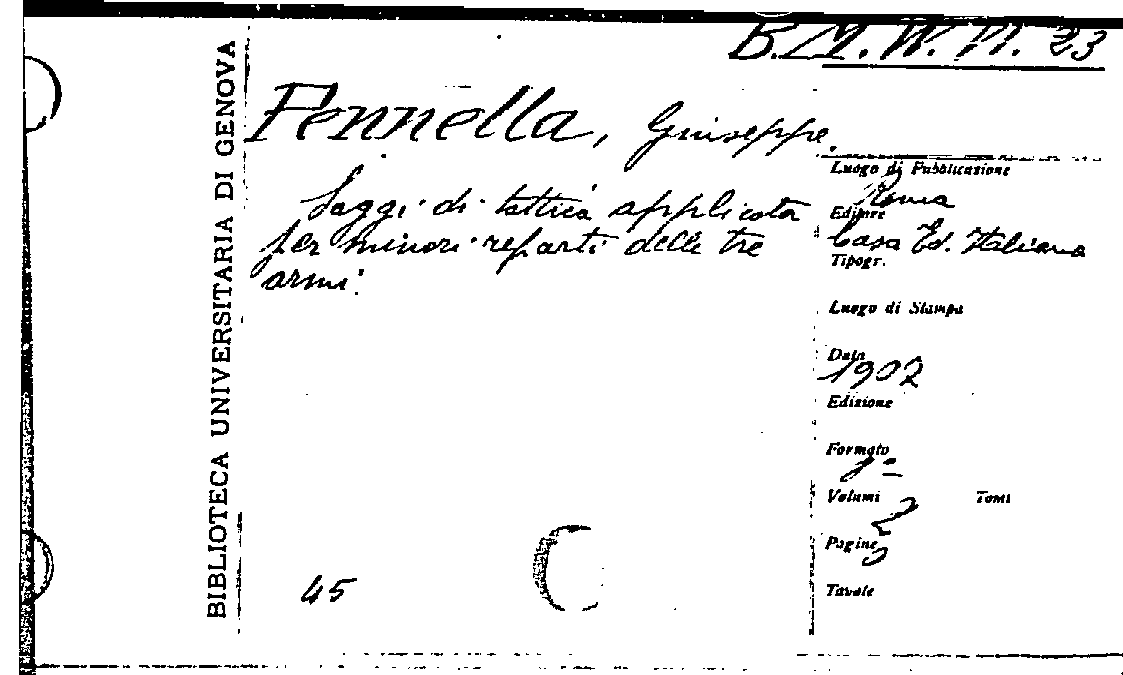 B. M. W. VI. 23
BIBLIOTECA UNIVERSITARIA DI GENOVA
Fennella, Giuseppe.
Saggi di tattica applicata
per minori reparti delle tre
armi.
Luogo di Pubblicazione
Roma
Editore
Casa Ed. Italiana
Tipogr.
Luogo di Stampa
Data
1902
Edizione
Formato
8°
Volumi Tomi
2
Pagine
Tavole
45